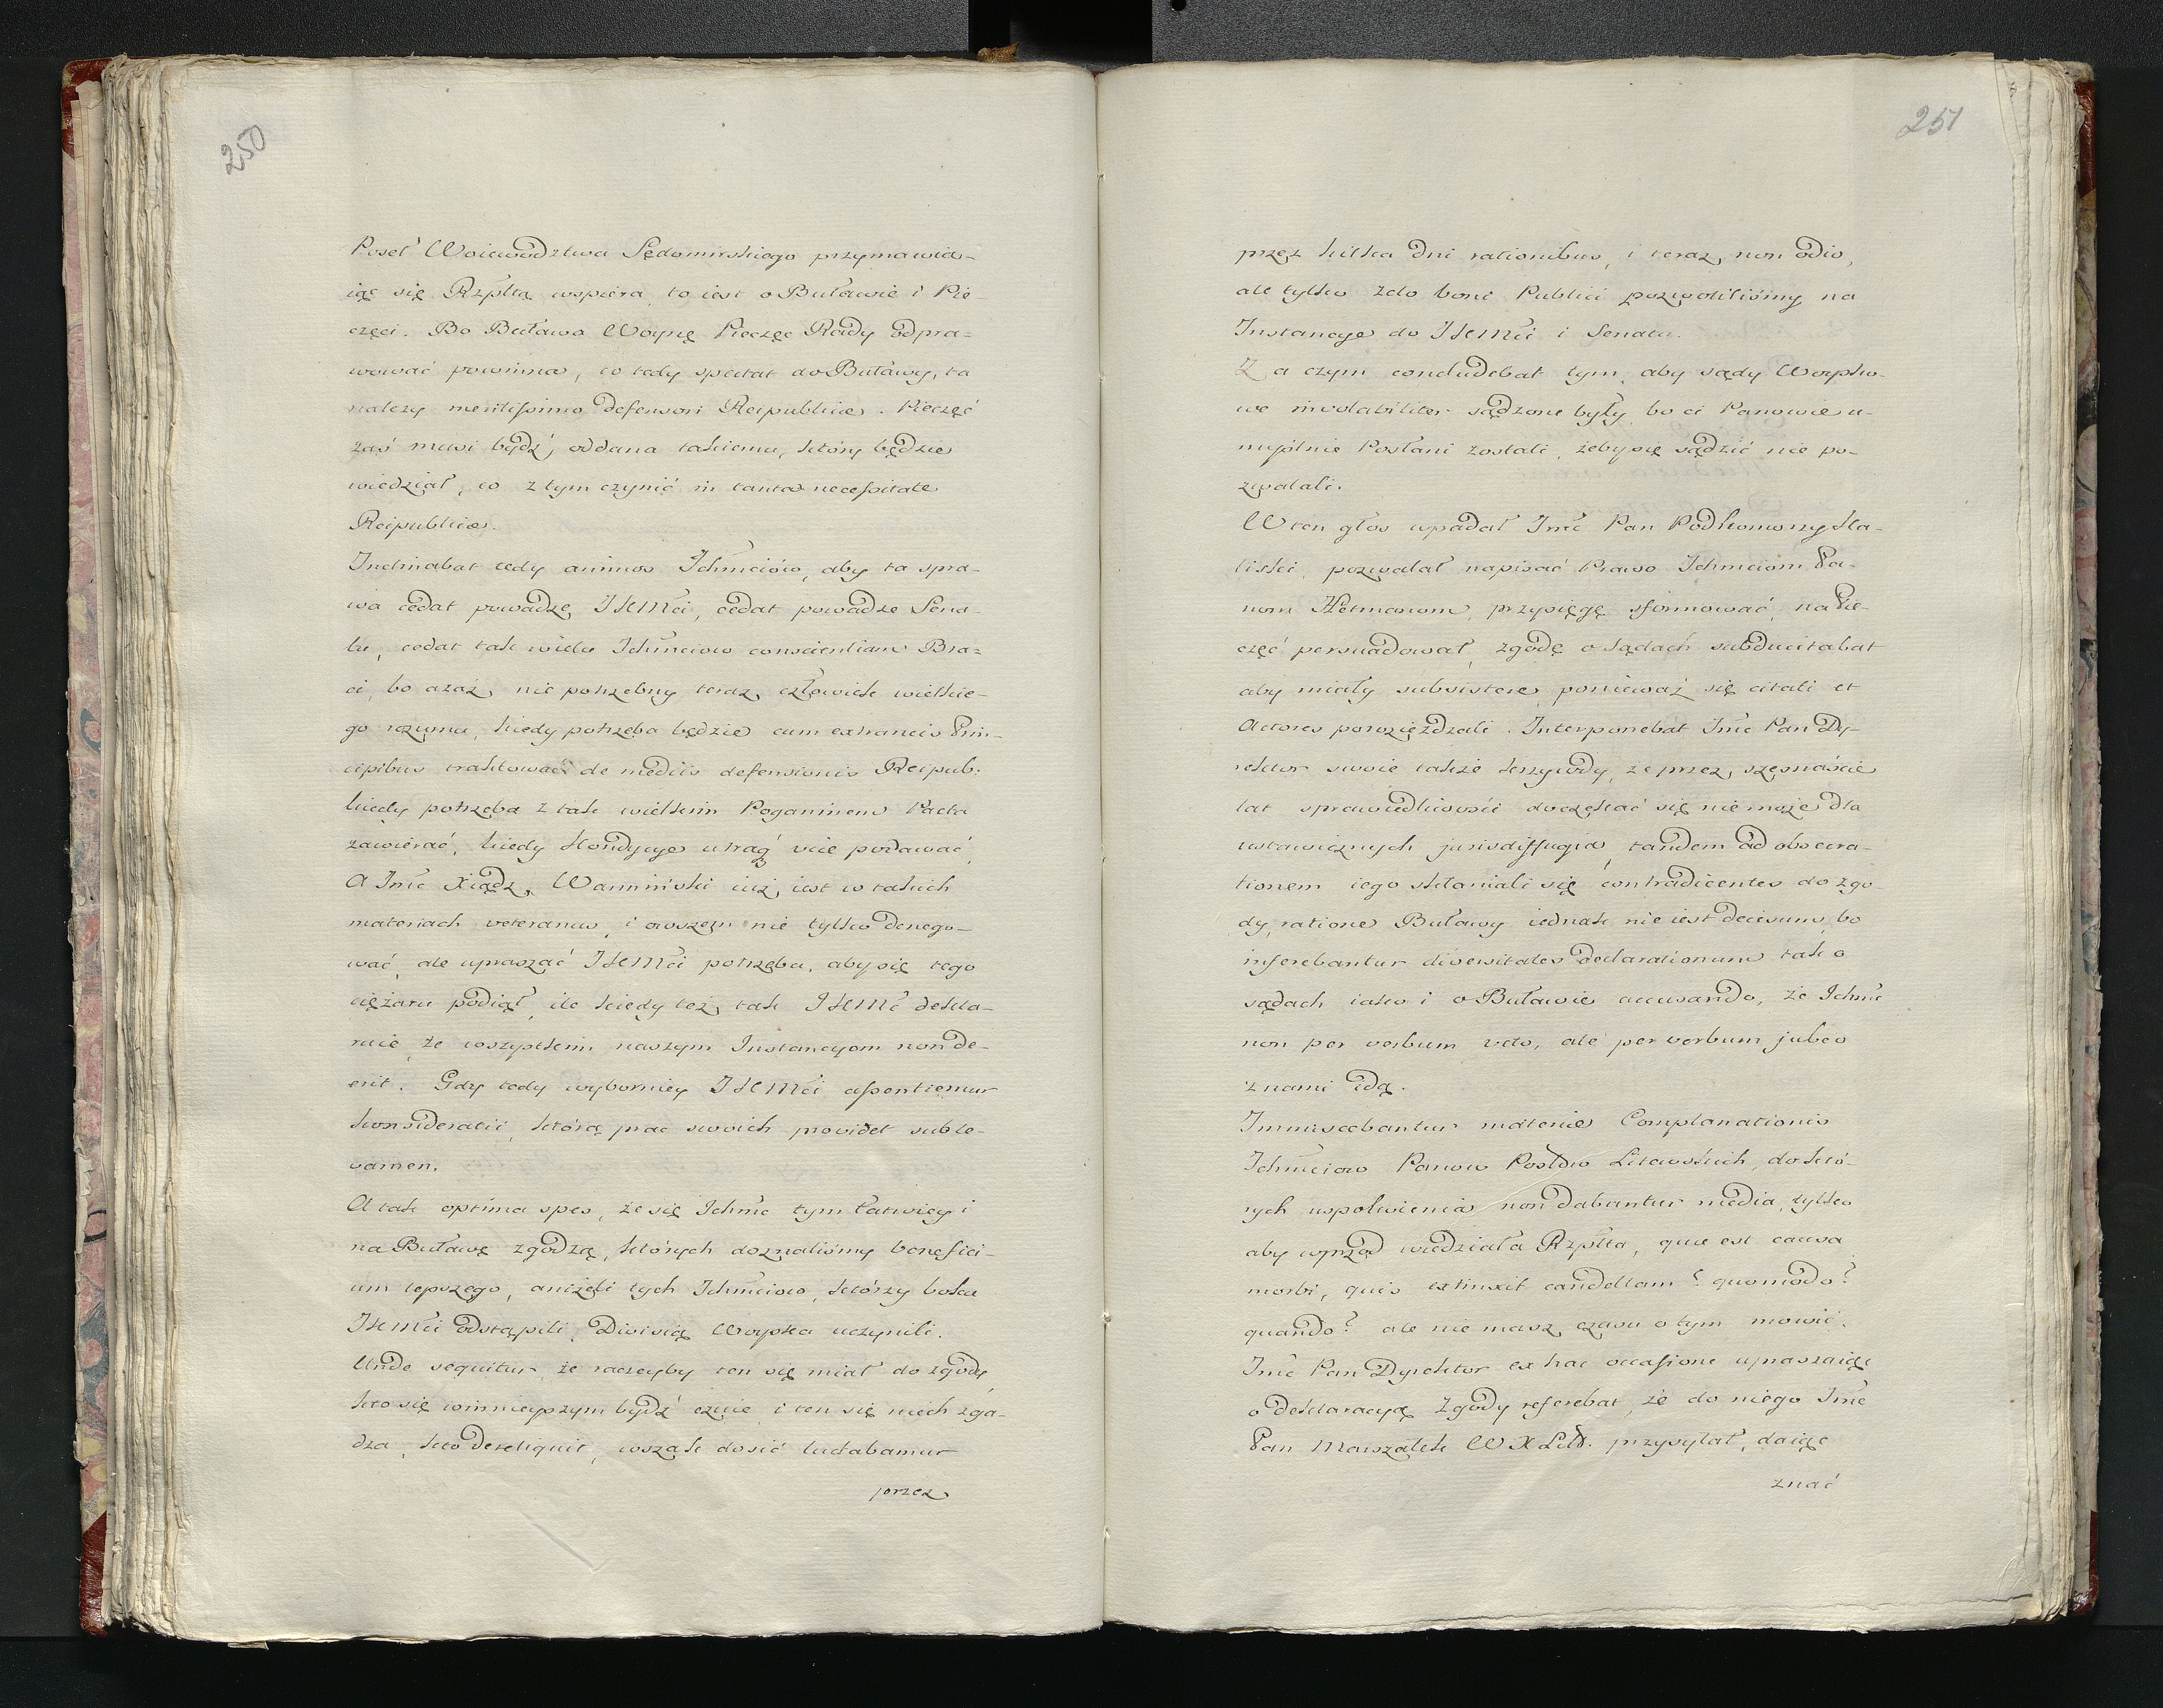 250
Poseł Woiewodztwa Sędomirskiego przymawia-
iąc się Rzplta wspiera, to iest o Buławie i Pie-
częci. Bo Buława Woynę Pieczęc Rady odpra-
wować powinna, co tedy spectat do Buławy, ta
należy meritissimo defensori Reipublicæ. Pieczęć
zaś musi bydź, oddana takiemu, który będzie
wiedział, co z tym czynić in tanta necessitate
Reipublicæ.
Inclinabat tedy animos Ichmciów, aby ta spra-
wa cedat powadze JKMći, cedat powadze Sena-
tu, cedat tak wielu Ichmciow conscientiam Bra-
ci, bo azaż nie potrzebny teraz człowiek wielkie-
go rozumu, kiedy potrzeba będzie cum extraneis Prin-
cipibus traktować de mediis defensionis Reipub:
kiedy potrzeba z tak wielkim Poganinem Pacta
zawierać, kiedy Kondycye utrag vice podawać,
A Jmć Xiądz Warminski iuż iest w takich
materiach veteranus, i owszem nie tylko denego-
wać, ale upraszać JKMći potrzeba, aby się tego
ciężaru podiął, ile kiedy też tak JKMć dekla-
ruie, że wszystkim naszym Instancyom non de-
erit. Gdy tedy wyborniey JKMći assentiemur
konsideracii, którą prac swoich providet suble-
vamen.
A tak optima spes, że się Ichmć tym łatwiey i
na Buławę zgodzą, których doznaliśmy benefici-
um lepszego, aniżeli tych Ichmciow, którzy boku
JKMći odstąpili, Divisią Woyska uczynili.
Unde sequitur, że raczeyby ten się miał do zgody
kto się winnieyszym bydź czuie, i ten się niech zga-
dza, kto dereliquit, wszak dosić luctabamur
przez
251
przez kilka dni rationibus, i teraz non odio,
ale tylko zelo boni Publici pozwoliliśmy na
Instancye do JKMći i Senatu.
Za czym concludebat tym, aby sądy Woysko-
we inviolabiliter sądzone były, bo ci Panowie u-
myślnie Posłani zostali, żeby się sądzić nie po-
zwalali.
W ten głos wpadał Jmć Pan Podkomorzy Ka-
liski, pozwalał napisać Prawo Ichmciom Pa-
nom Hetmanom, przysięgę sformować, na Pie-
częć perswadował, zgodę o Sądach subducitabat
aby miały subsistere, ponieważ się citali et
Actores porozieżdzali. Interponebat Jmć Pan Dy-
rektor swoie także krzywdy, że przez szesnaście
lat sprawiedliwości doczekać się nie może dla
ustawicznych jurisdiffugia, tandem ad obsecra-
tionem iego skłaniali się contradicentes do zgo-
dy, ratione Buławy iednak nie iest decisum, bo
inferebantur diversitates declarationum tak o
sądach iako i o Buławie accusando, że Ichmć
non per verbum veto, ale per verbum jubeo
z nami idą.
Immiscebantur materie Complanationis
Ichmciow Panow Posłow Litewskich, do któ-
rych uspokoienia non dabantur media, tylko
aby wprzod wiedziała Rzplta, quæ est causa
morbi, quis extinxit candellam? quomodo?
quando? ale nie masz czasu o tym mowić.
Jmć Pan Dyrektor ex hac occasione upraszaiąc
o deklaracyą Zgody referebat, że do niego Jmć
Pan Marszałek W X Litt. przysyłał, daiąc
znać